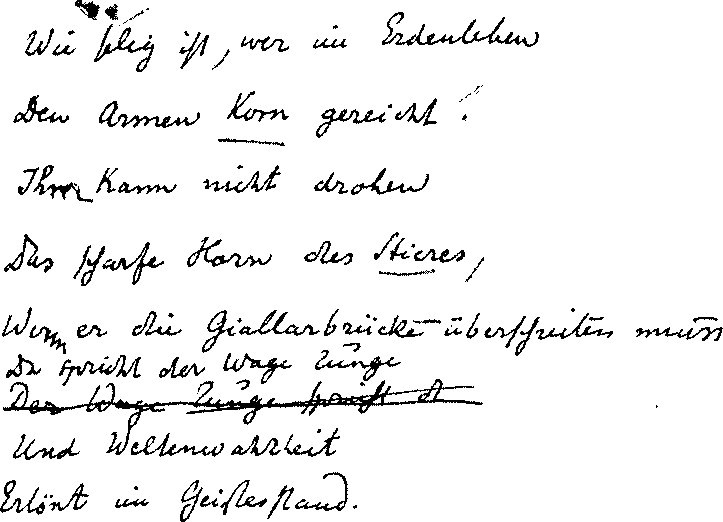 Wie selig ist, wer im Erdenleben
Den Armen Korn gereicht.
Ihm kann nicht drohen
Das scharfe Horn des Stieres,
Wenn er die Giallarbrücke überschreiten muss
Da spricht der Wage Zunge
Der Wage Zunge spricht d
Und Weltenwahrheit
Ertönt im Geistesstand.